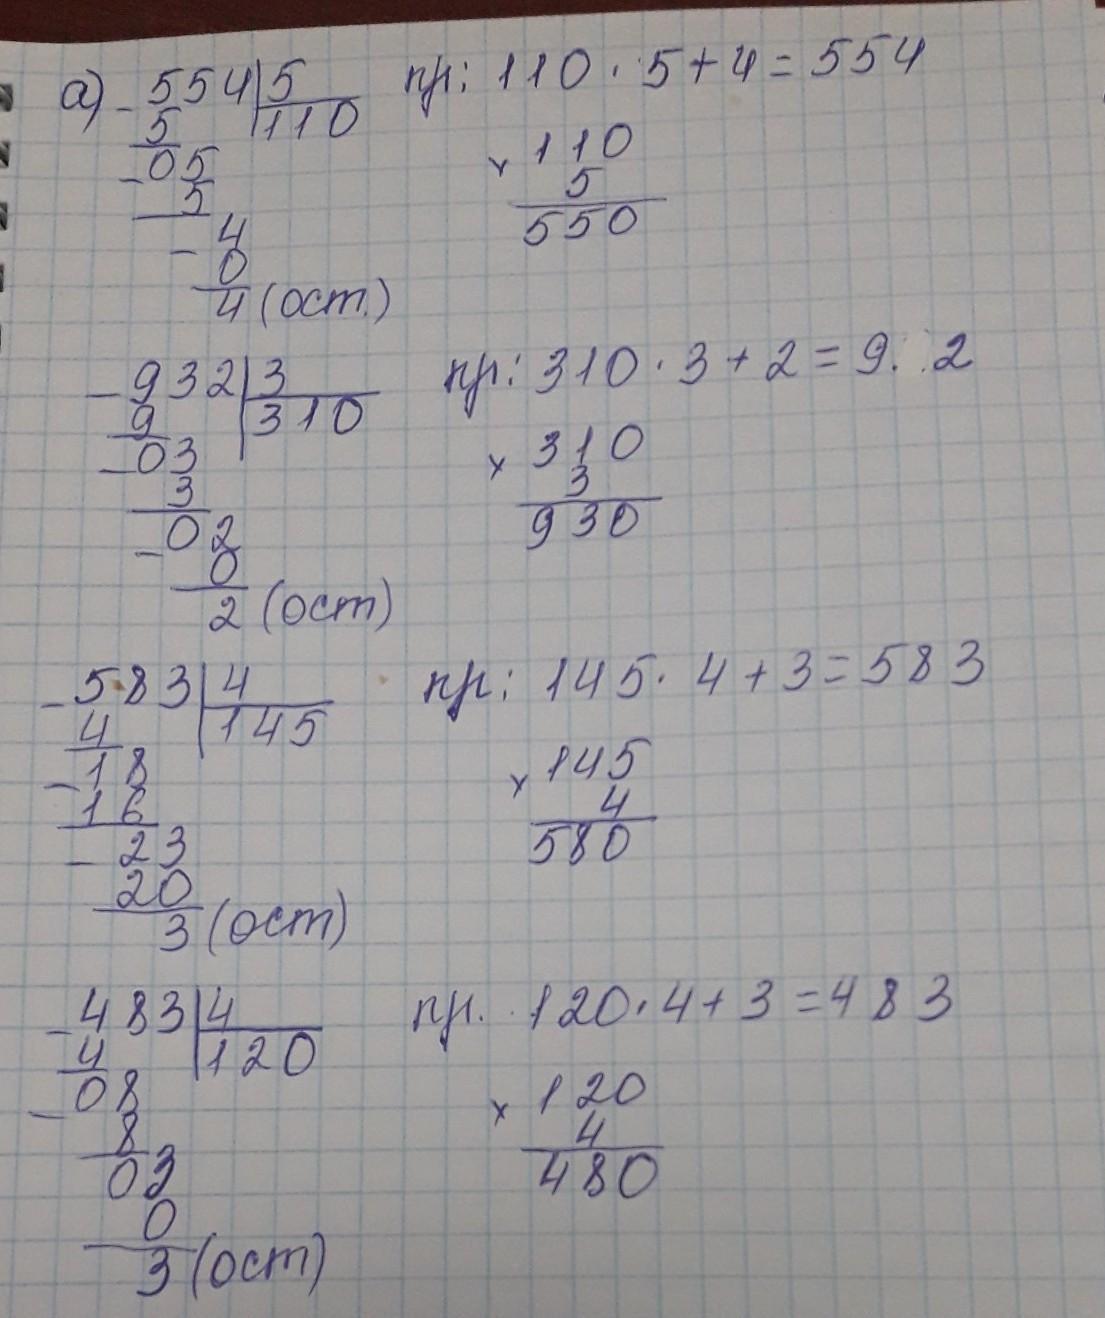 а) - 554 | 5    пр: 110 · 5 + 4 = 554
5 | 110
- 05    × 110
5    5
- 4    550
0
4 (ост.)
- 932 | 3    пр: 310 · 3 + 2 = 9 2
9 | 310
- 03    × 310
3    3
- 02    930
0
2 (ост)
- 583 | 4    пр: 145 · 4 + 3 = 583
4 | 145
- 18    × 145
16    4
- 23    580
20
3 (ост)
- 483 | 4    пр. 120 · 4 + 3 = 483
4 | 120
- 08    × 120
8    4
03    480
0
3 (ост)